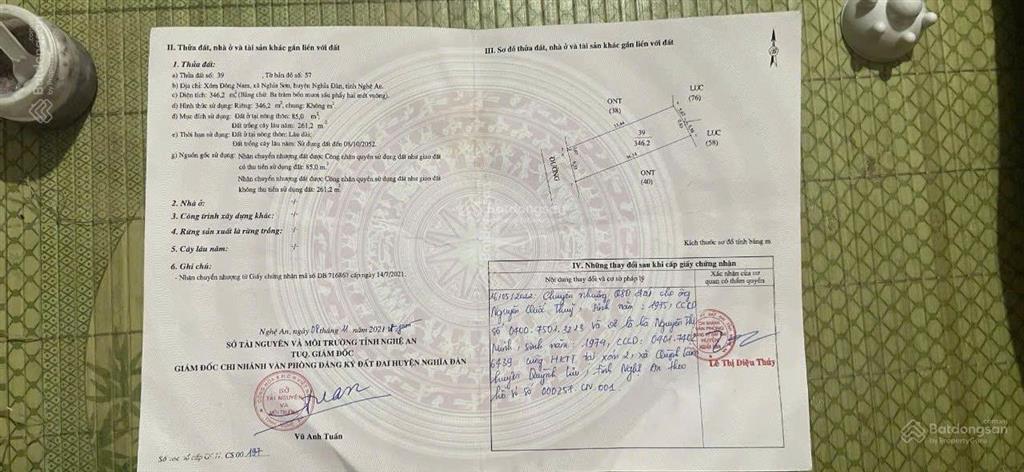 II. Thửa đất, nhà ở và tài sản khác gắn liền với đất
1. Thửa đất:
a) Thửa đất số: 39 , Tờ bản đồ số: 57
b) Địa chỉ: Xóm Đông Nam, xã Nghĩa Sơn, huyện Nghĩa Đàn, tỉnh Nghệ An.
c) Diện tích: 346,2 m², (Bằng chữ: Ba trăm bốn mươi sáu phẩy hai mét vuông).
d) Hình thức sử dụng: Riêng: 346,2 m², chung: Không m².
đ) Mục đích sử dụng: Đất ở tại nông thôn: 85,0 m²;
Đất trồng cây lâu năm: 261,2 m²
e) Thời hạn sử dụng: Đất ở tại nông thôn: Lâu dài;
Đất trồng cây lâu năm: Sử dụng đất đến 08/10/2052.
g) Nguồn gốc sử dụng: Nhận chuyển nhượng đất được Công nhận quyền sử dụng đất như giao đất
có thu tiền sử dụng đất: 85,0 m²
Nhận chuyển nhượng đất được Công nhận quyền sử dụng đất như giao đất
không thu tiền sử dụng đất: 261,2 m²
2. Nhà ở: -/-
3. Công trình xây dựng khác: -/-
4. Rừng sản xuất là rừng trồng: -/-
5. Cây lâu năm: -/-
6. Ghi chú:
- Nhận chuyển nhượng từ Giấy chứng nhận mã số DB 716867 cấp ngày 14/7/2021.
Nghệ An, ngày 08 tháng 11 năm 2021
SỞ TÀI NGUYÊN VÀ MÔI TRƯỜNG TỈNH NGHỆ AN
TUQ. GIÁM ĐỐC
GIÁM ĐỐC CHI NHÁNH VĂN PHÒNG ĐĂNG KÝ ĐẤT ĐAI HUYỆN NGHĨA ĐÀN
SỞ
TÀI NGUYÊN
VÀ
MÔI TRƯỜNG
Vũ Anh Tuấn
CS 00 197
III. Sơ đồ thửa đất, nhà ở và tài sản khác gắn liền với đất
LUC
(76)
ONT
(38)
39
346.2
LUC
(58)
ĐƯỜNG
ONT
(40)
Kích thước sơ đồ tính bằng m
IV. Những thay đổi sau khi cấp giấy chứng nhận
Nội dung thay đổi và cơ sở pháp lý
Xác nhận của cơ
quan có thẩm quyền
Chuyển nhượng QSD đất cho ông
Nguyễn Thuỷ, sinh năm: 1975, CCCD
số và bà Nguyễn Thị
Minh, sinh năm: 1979, CCCD:
cùng HKTT tại xóm 2, xã Quỳnh
huyện Quỳnh Lưu, tỉnh Nghệ An theo
hồ sơ số 000257. CN. 001.
Lê Thị Diệu Thúy
Batdongsan
by PropertyGuru